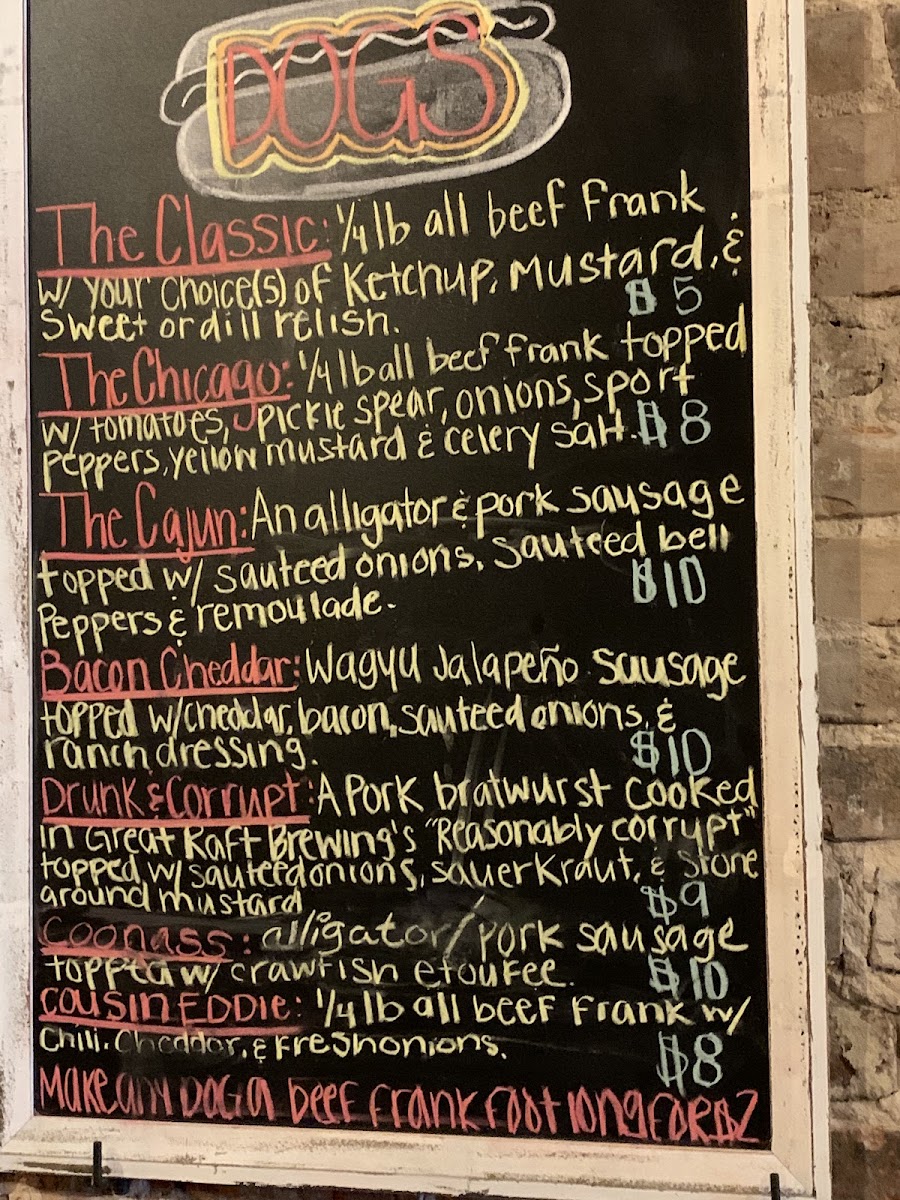 DOGS
The Classic: 1/4 lb all beef Frank
w/ your choice(s) of Ketchup, Mustard, &
sweet or dill relish. $5
The Chicago: 1/4 lb all beef frank topped
w/ tomatoes, pickle spear, onions, sport
peppers, yellow mustard & celery salt. $8
The Cajun: An alligator & pork sausage
topped w/ sauteed onions, sauteed bell
Peppers & remoulade. $10
Bacon Cheddar: Wagyu Jalapeño sausage
topped w/ cheddar, bacon, sauteed onions, &
ranch dressing. $10
Drunk & Corrupt: A Pork bratwurst cooked
in Great Raft Brewing's "Reasonably corrupt"
topped w/ sauteed onions, sauerkraut, & stone
around mustard $9
Coonass: alligator/pork sausage
topped w/ crawfish etoufee. $10
Cousin EDDIE: 1/4 lb all beef Frank w/
Chili, Cheddar, & Fresh onions. $8
Make any DOG a beef frank foot long FOR $2